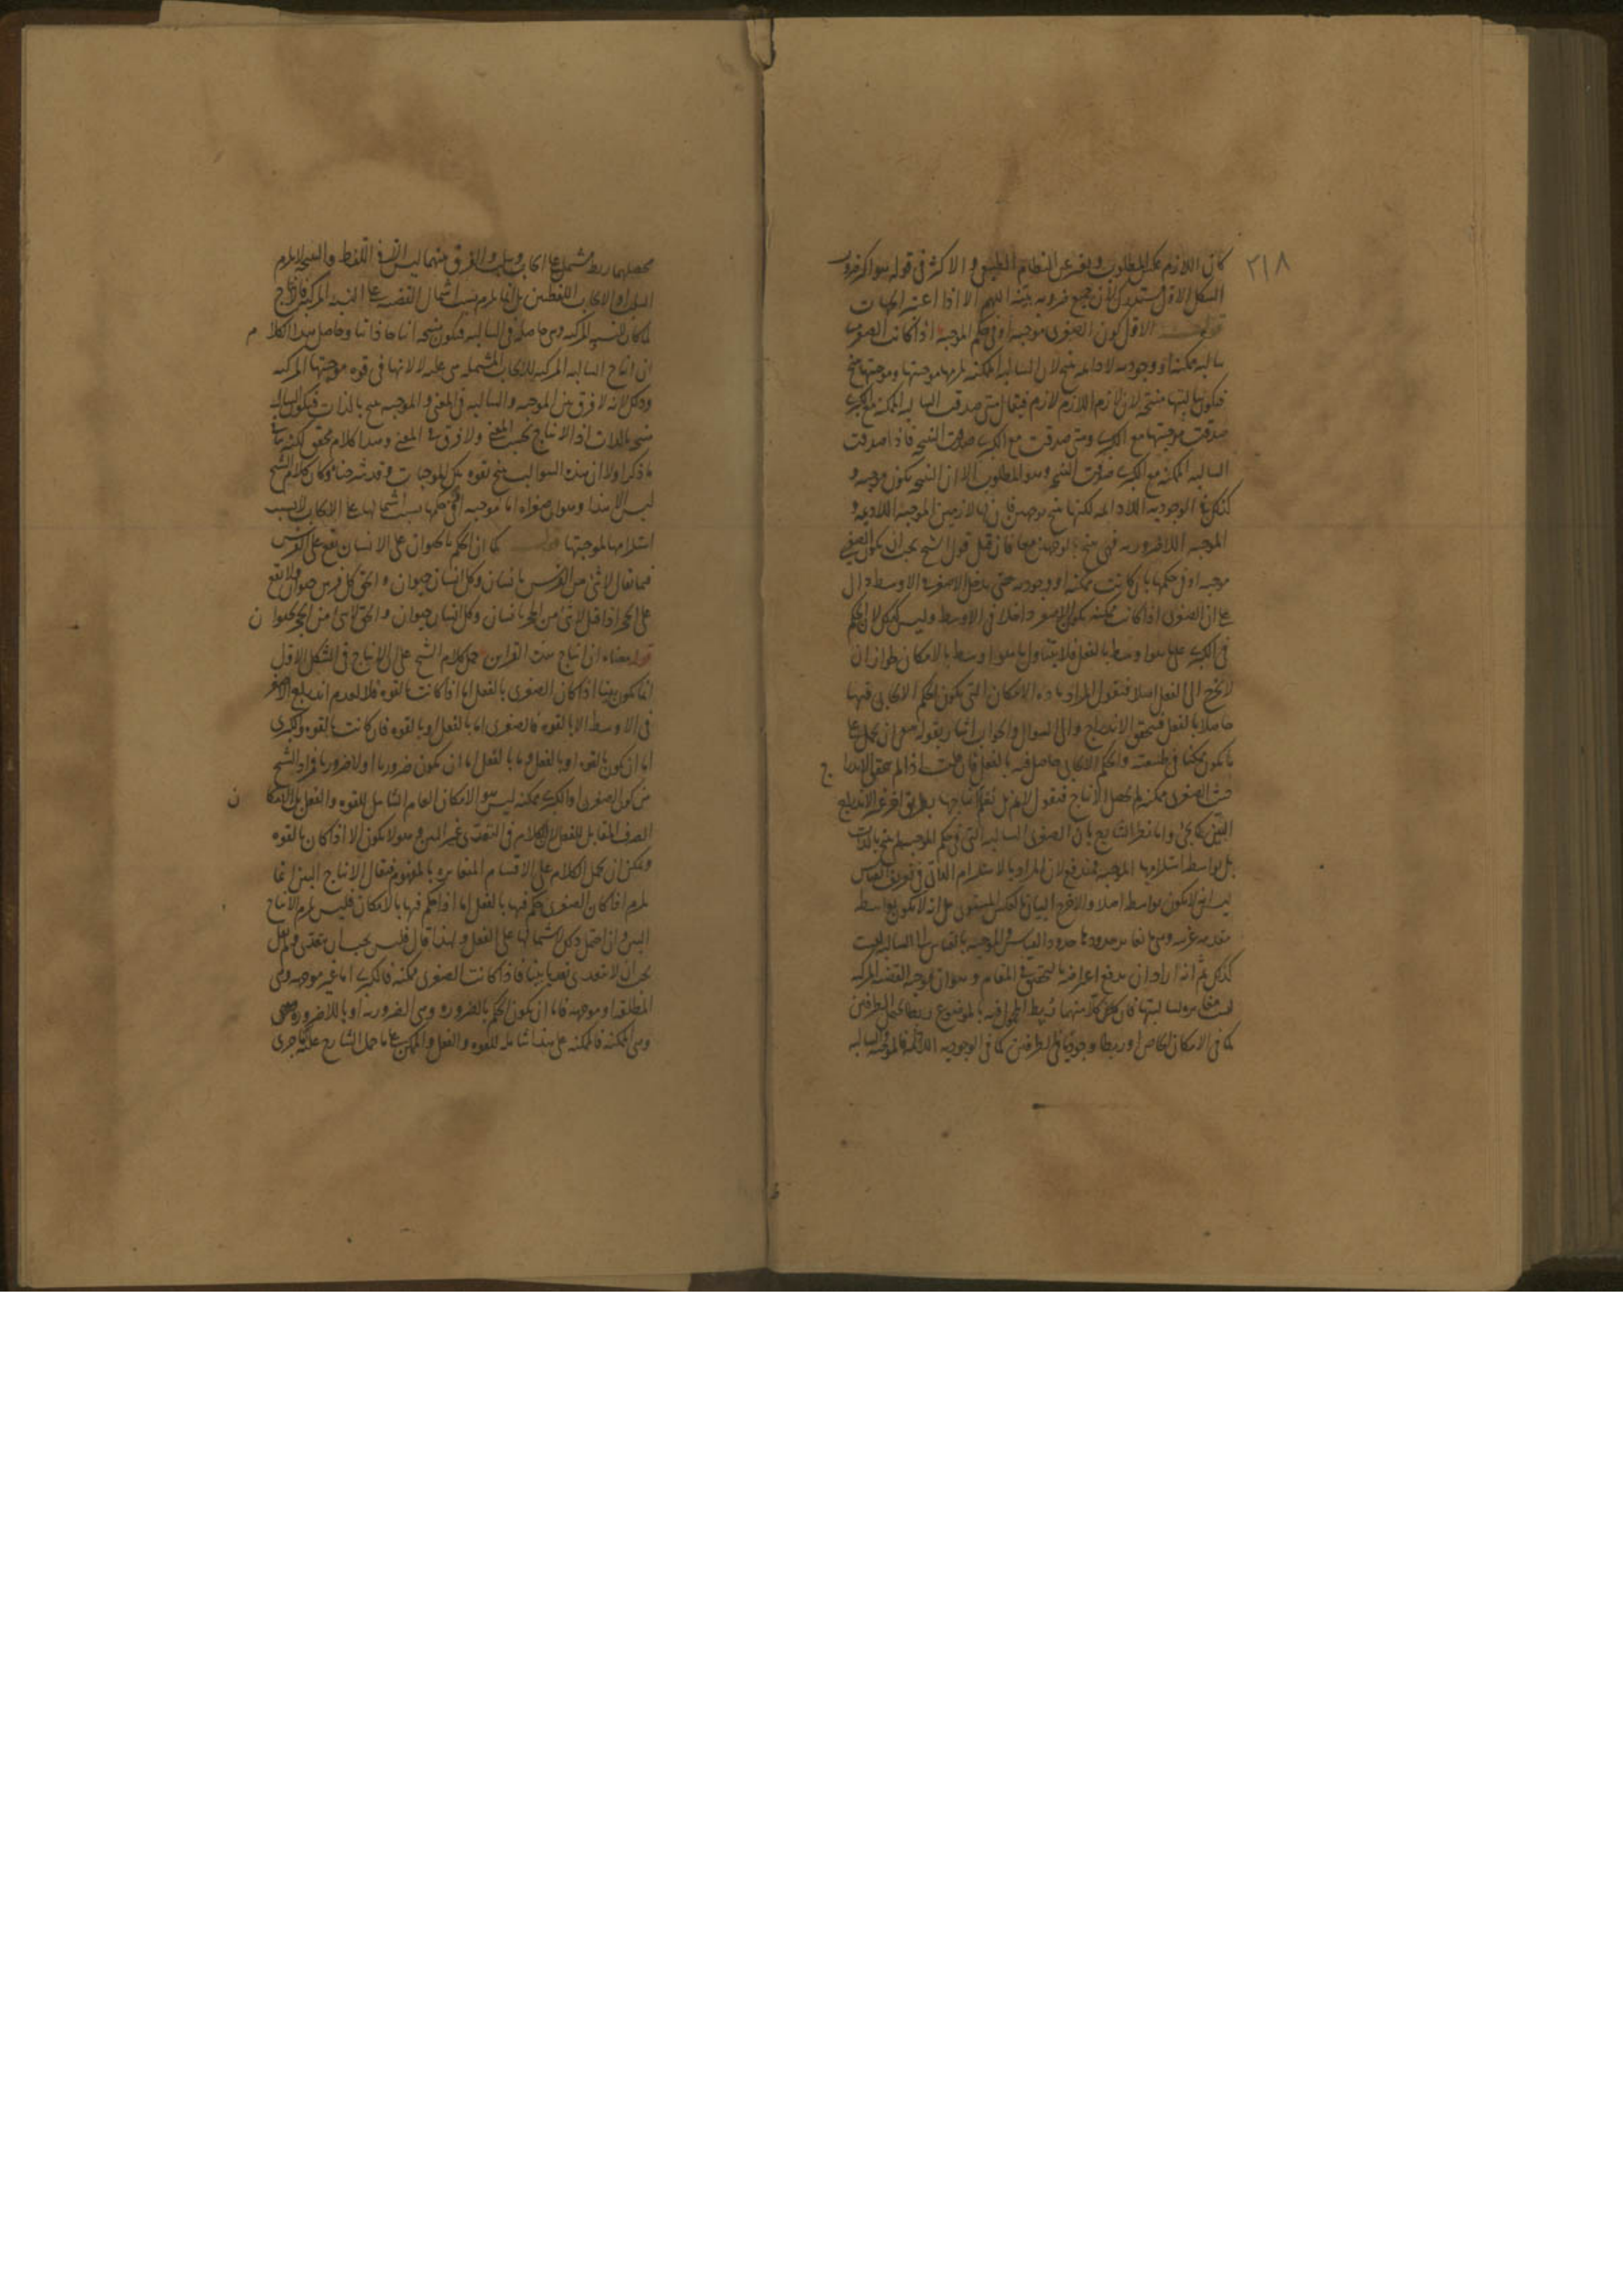 ٣١٨
كان اللازم عكس المطلوب وبعد عن النظام الطبيعي والاكثر في قوله هو اكثر ضرورب
الشكل الاول مستدرك لان جميع ضروبه بينة اللهم الا اذا اعتبر الجهات
الاول كون الصغرى موجبة او في حكم الموجبة اذا كانت الصغرى
سالبة ممكنة او وجودية لا دايمة ينتج لان السالبة الممكنة يلزمها موجبتها وموجبتها ينتج
فيكون سالبتها منتجة لان لازم اللازم لازم فيقال متى صدقت السالبة الممكنة مع الكبرى
صدقت موجبتها مع الكبرى ومتى صدقت مع الكبرى صدقت النتيجة فاذا صدقت
السالبة الممكنة مع الكبرى صدقت النتيجة وهو المطلوب الا ان النتيجة يكون موجبة و
كذلك في الوجودية اللا دايمة لكنها ينتج بوجهين فان لها لازمين الموجبة اللا دايمة و
الموجبة اللاضرورية فهي ينتج بوجهين معا فان قيل قول الشيخ يجب ان يكون الصغرى
موجبة او في حكمها بان كانت ممكنة او وجودية حتى يدخل الاصغر في الاوسط دال
على ان الصغرى اذا كانت ممكنة يكون الاصغر داخلا في الاوسط وليس كذلك لان الحكم
في الكبرى على ما هو اوسط بالفعل فلا يتناول ما هو اوسط بالامكان لجواز ان
لا يخرج الى الفعل اصلا فنقول المراد مادة الامكان التي يكون الحكم الايجابي فيها
حاصلا بالفعل فيتحقق الاندراج والى السوال والجواب اشار بقوله ان يحمل على
ما يكون ممكنا في طبيعته والحكم الايجابي حاصل فيه بالفعل فان قلت اذا لم يتحقق الاندراج
حيث الصغرى ممكنة لم يحصل الانتاج فنقول لا يلزم بل انتاجها بطريق اخر غير الاندراج
البين كما يجئ واما نظر الشارح بان الصغرى السالبة التي في حكم الموجبة لم ينتج بالذات
بل بواسطة استلزامها الموجبة فمندفع لان المراد بالاستلزام الذاتي في تعريف القياس
ليس ان لا يكون بواسطة اصلا والا خرج البيان بالعكس المستوى بل انه لا يكون بواسطة
مقدمة غريبة وهي ما يغاير حدودها حدود القياس والموجبة بالقياس الى السالبة ليست
كذلك ثم انه اراد ان يدفع اعتراضه بالتحقيق في المقام وهو ان موجبة القضية المركبة
ليست مغايرة لسالبتها فان كلا منهما ربط المحمول فيه بالموضوع ربطا يحتمل الطرفين
كما في الامكان الخاص او ربطا وجوديا في الطرفين كما في الوجودية اللادائمة فالموجبة والسالبة
محصلهما ربط مشتمل على ايجاب وسلب والفرق بينهما ليس الا في اللفظ والنتيجة لا يلزم
السلب او الايجاب اللفظيين بل انما يلزم بسبب اشتمال القضية على النسبة المركبة فالانتاج
لما كان للنسبة المركبة وهي حاصلة في السالبة فيكون منتجة انتاجا ذاتيا وحاصل هذا الكلام
ان انتاج السالبة المركبة للايجاب المشتملة هي عليه لا لانها في قوة موجبتها المركبة
وذلك لانه لا فرق بين الموجبة والسالبة في المعنى والموجبة ينتج بالذات فيكون السالبة
منتجة بالذات اذ الانتاج بحسب المعنى ولا فرق في المعنى وهذا كلام محقق لكنه ينافي
ما ذكر اولا ان هذه السوالب ينتج بقوة تلك الموجبات وقد شرحناه وكان كلام الشيخ
ليس الا هذا وهو ان صغراه اما موجبة او في حكمها بسبب اشتمالها على الايجاب لا بسبب
استلزامها لموجبتها كما ان الحكم بالحيوان على الانسان يقع على الفرس
فيما يقال لا شئ من الفرس بانسان وكل انسان حيوان والحق كل فرس حيوان ولا يقع
على الحجر اذا قيل لا شئ من الحجر بانسان وكل انسان حيوان والحق لا شئ من الحجر بحيوان
قوله معناه ان انتاج هذه القراين حمل كلام الشيخ على ان الانتاج في الشكل الاول
انما يكون بينا اذا كان الصغرى بالفعل اما اذا كانت بالقوة فلا لعدم اندراج الاصغر
في الاوسط الا بالقوة فالصغرى اما بالفعل او بالقوة فان كانت بالقوة فالكبرى
اما ان يكون بالقوة او بالفعل وما بالفعل اما ان يكون ضروريا او لا ضروريا فمراد الشيخ
من كون الصغرى او الكبرى ممكنة ليس هو الامكان العام الشامل للقوة والفعل بل الامكان
الصرف المقابل للفعل لان الكلام في التعدى غير البين وهو لا يكون الا اذا كان بالقوة
ويمكن ان يحمل الكلام على الاقسام المتغايرة بالمفهوم فيقال الانتاج البين انما
يلزم اذا كان الصغرى حكم فيها بالفعل اما اذا حكم فيها بالامكان فليس يلزم الانتاج
البين وان احتمل ذلك لاشتمالها على الفعل ولهذا قال فليس يجب ان يتعدى ولم يقل
يجب ان لا يتعدى تعديا بينا فاذا كانت الصغرى ممكنة فالكبرى اما غير موجهة وهي
المطلقة او موجهة فاما ان يكون الحكم بالضرورة وهي الضرورية او باللاضرورة
وهي الممكنة فالممكنة على هذا شاملة للقوة والفعل والممكن على ما حمل الشارح عليه ما جرى